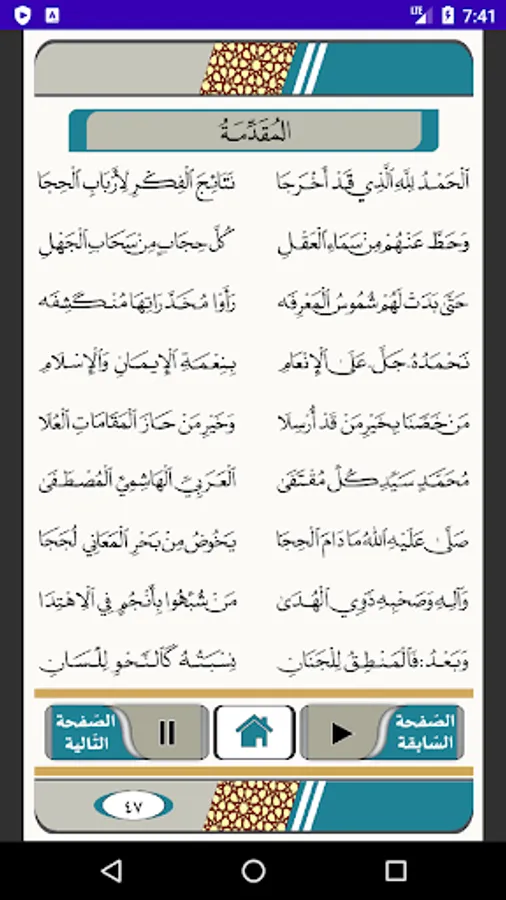 LTE 7:41
المُقَدِّمَةُ
اَلْحَمْدُ لِلّٰهِ الَّذِي قَدْ أَخْرَجَا نَتَائِجَ الْفِكْرِ لِأَرْبَابِ الْحِجَا
وَحَطَّ عَنْهُمْ مِنْ سَمَاءِ الْعَقْلِ كُلَّ حِجَابٍ مِنْ سَحَابِ الْجَهْلِ
حَتَّى بَدَتْ لَهُمْ شُمُوسُ الْمَعْرِفَه رَأَوْا مُخَدَّرَاتِهَا مُنْكَشِفَه
نَحْمَدُهُ جَلَّ عَلَى الْإِنْعَامِ بِنِعْمَةِ الْإِيمَانِ وَالْإِسْلَامِ
مَنْ خَصَّنَا بِخَيْرِ مَنْ قَدْ أُرْسِلَا وَخَيْرِ مَنْ حَازَ الْمَقَامَاتِ الْعُلَا
مُحَمَّدٍ سَيِّدِ كُلِّ مُقْتَفَى الْعَرَبِيِّ الْهَاشِمِيِّ الْمُصْطَفَى
صَلَّى عَلَيْهِ اللّٰهُ مَا دَامَ الْحِجَا يَخُوضُ مِنْ بَحْرِ الْمَعَانِي لُجَجَا
وَآلِهِ وَصَحْبِهِ ذَوِي الْهُدَى مَنْ شُبِّهُوا بِأَنْجُمٍ فِي الْاِهْتِدَا
وَبَعْدُ: فَالْمَنْطِقُ لِلْجَنَانِ نِسْبَتُهُ كَالنَّحْوِ لِلِّسَانِ
الصّفحة السّابقة
الصّفحة التّالية
٤٧